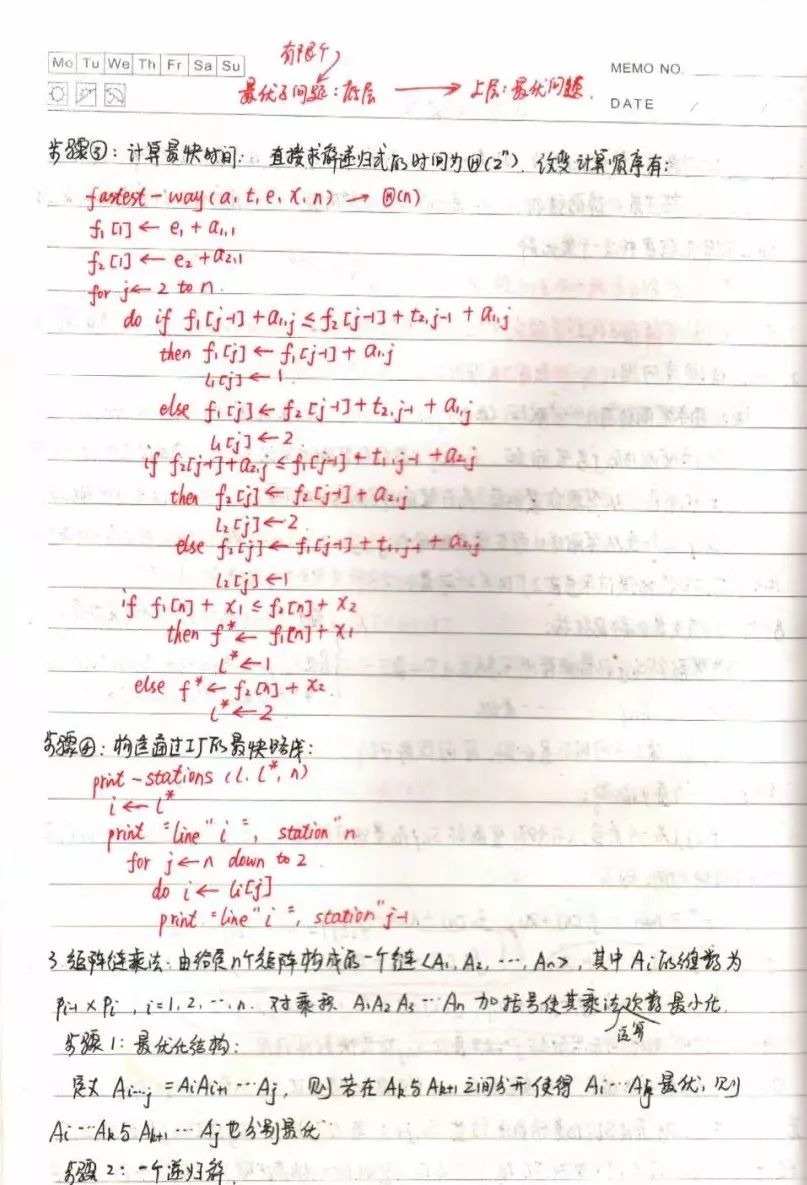 Mo Tu We Th Fr Sa Su
有限个
MEMO NO.
最优子问题:底层 → 上层:最优问题.
DATE / /
步骤③:计算最快时间: 直接求解递归式的时间为Θ(2ⁿ). 改变计算顺序有:
fastest-way(a, t, e, x, n) → Θ(n)
f₁[1] ← e₁ + a₁,₁
f₂[1] ← e₂ + a₂,₁
for j ← 2 to n.
do if f₁[j-1] + a₁,j ≤ f₂[j-1] + t₂,j-1 + a₁,j
then f₁[j] ← f₁[j-1] + a₁,j
l₁[j] ← 1
else f₁[j] ← f₂[j-1] + t₂,j-1 + a₁,j
l₁[j] ← 2
if f₂[j-1] + a₂,j ≤ f₁[j-1] + t₁,j-1 + a₂,j
then f₂[j] ← f₂[j-1] + a₂,j
l₂[j] ← 2
else f₂[j] ← f₁[j-1] + t₁,j-1 + a₂,j
l₂[j] ← 1
if f₁[n] + x₁ ≤ f₂[n] + x₂
then f* ← f₁[n] + x₁
l* ← 1
else f* ← f₂[n] + x₂
l* ← 2
步骤④:构造通过工厂的最快路线:
print-stations (l, l*, n)
i ← l*
print "line" i ", station" n
for j ← n down to 2
do i ← li[j]
print "line" i ", station" j-1
3. 矩阵链乘法:由给定n个矩阵构成的一个链<A₁, A₂, ⋯, An>, 其中 Ai的维数为
Pi-1 × Pi , i=1, 2, ⋯, n. 对乘积 A₁A₂A₃⋯An 加括号使其乘法次数最小化.
运算
步骤1:最优化结构:
定义 Ai⋯j = AiAi+1⋯Aj, 则若在Ak与Ak+1之间分开使得 Ai⋯Aj最优, 则
Ai⋯Ak与Ak+1⋯Aj也分别最优
步骤2:一个递归解